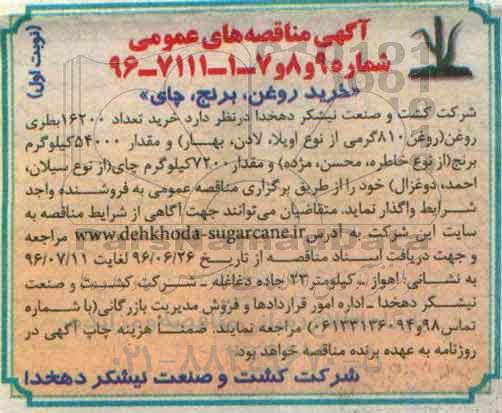 (نوبت اول)
آگهی مناقصه‌های عمومی
شماره ۹و۸و۷-۱-۷۱۱۱-۹۶
«خرید روغن، برنج، چای»
شرکت کشت و صنعت نیشکر دهخدا درنظر دارد خرید تعداد ۱۶۲۰۰بطری
روغن(روغن۸۱۰گرمی از نوع اویلا، لادن، بهار) و مقدار ۵۴۰۰۰کیلوگرم
برنج(از نوع خاطره، محسن، مژده) و مقدار۷۲۰۰کیلوگرم چای(از نوع سیلان،
احمد، دوغزال) خود را از طریق برگزاری مناقصه عمومی به فروشنده واجد
شرایط واگذار نماید. متقاضیان می‌توانند جهت آگاهی از شرایط مناقصه به
سایت این شرکت به آدرس www.dehkhoda-sugarcane.ir مراجعه
و جهت دریافت اسناد مناقصه از تاریخ ۹۶/۰۶/۲۶ لغایت ۹۶/۰۷/۱۱
به نشانی: اهواز ـ کیلومتر۲۳ جاده دغاغله ـ شرکت کشت و صنعت
نیشکر دهخدا ـ اداره امور قراردادها و فروش مدیریت بازرگانی(با شماره
تماس۹۸و۰۶۱۳۳۱۳۶۰۹۴) مراجعه نمایند. ضمناً هزینه چاپ آگهی در
روزنامه به عهده برنده مناقصه خواهد بود.
شرکت کشت و صنعت نیشکر دهخدا